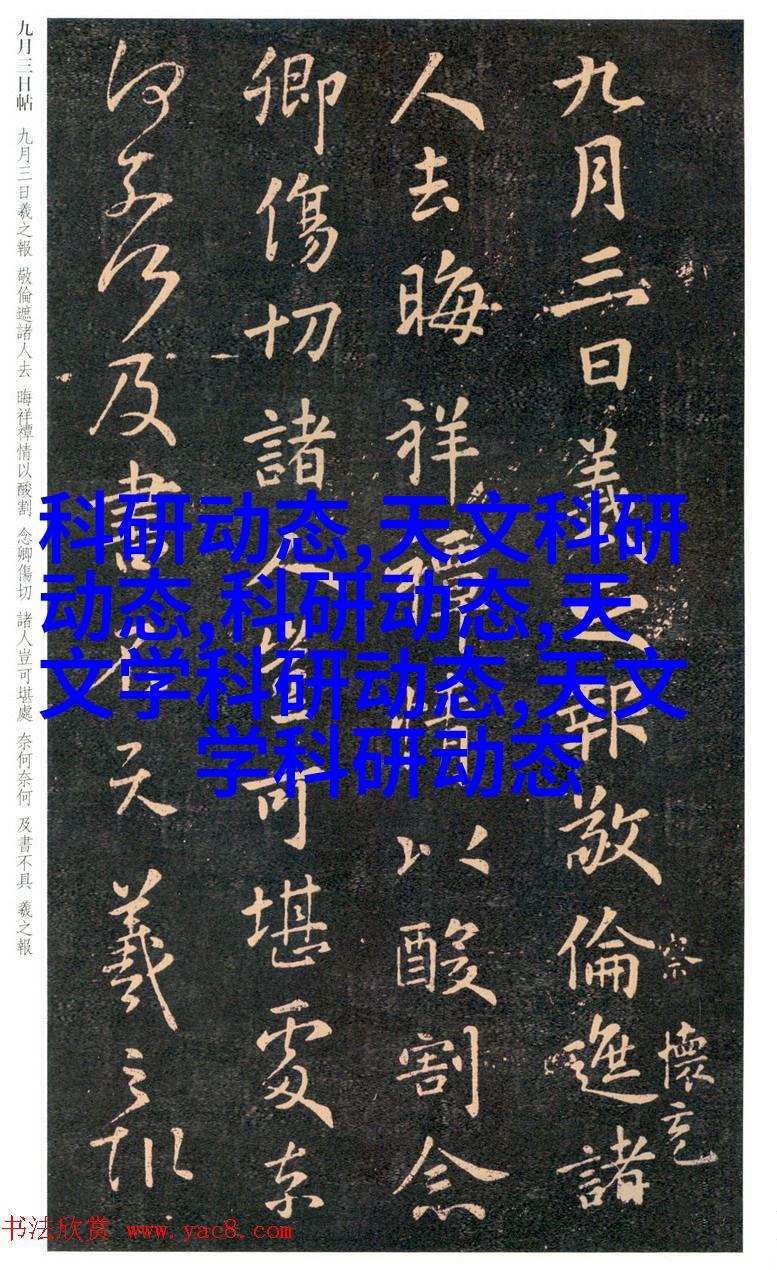 九月三日帖 九月三日羲之報 敬倫遮諸人去 晦祥禫情以酸割 念卿傷切 諸人豈可堪處 奈何奈何 及書不具 羲之報
九月三日羲之報敬倫遮諸
察 懷充
人去晦祥禫情以酸割念
卿傷切諸人豈可堪處奈
何奈何及書不具羲之報
科研动态,天文科研
动态,科研动态,天
文学科研动态,天文
学科研动态
书法欣赏 www.yac8.com